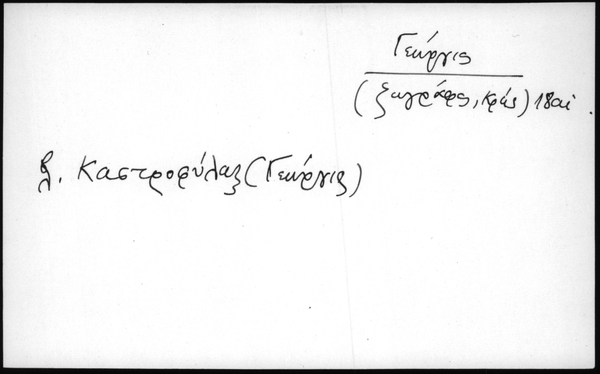 Γεώργιος
(ζωγράφος, Κρής) 18 αἰ.
βλ. Καστροφύλαξ (Γεώργιος)